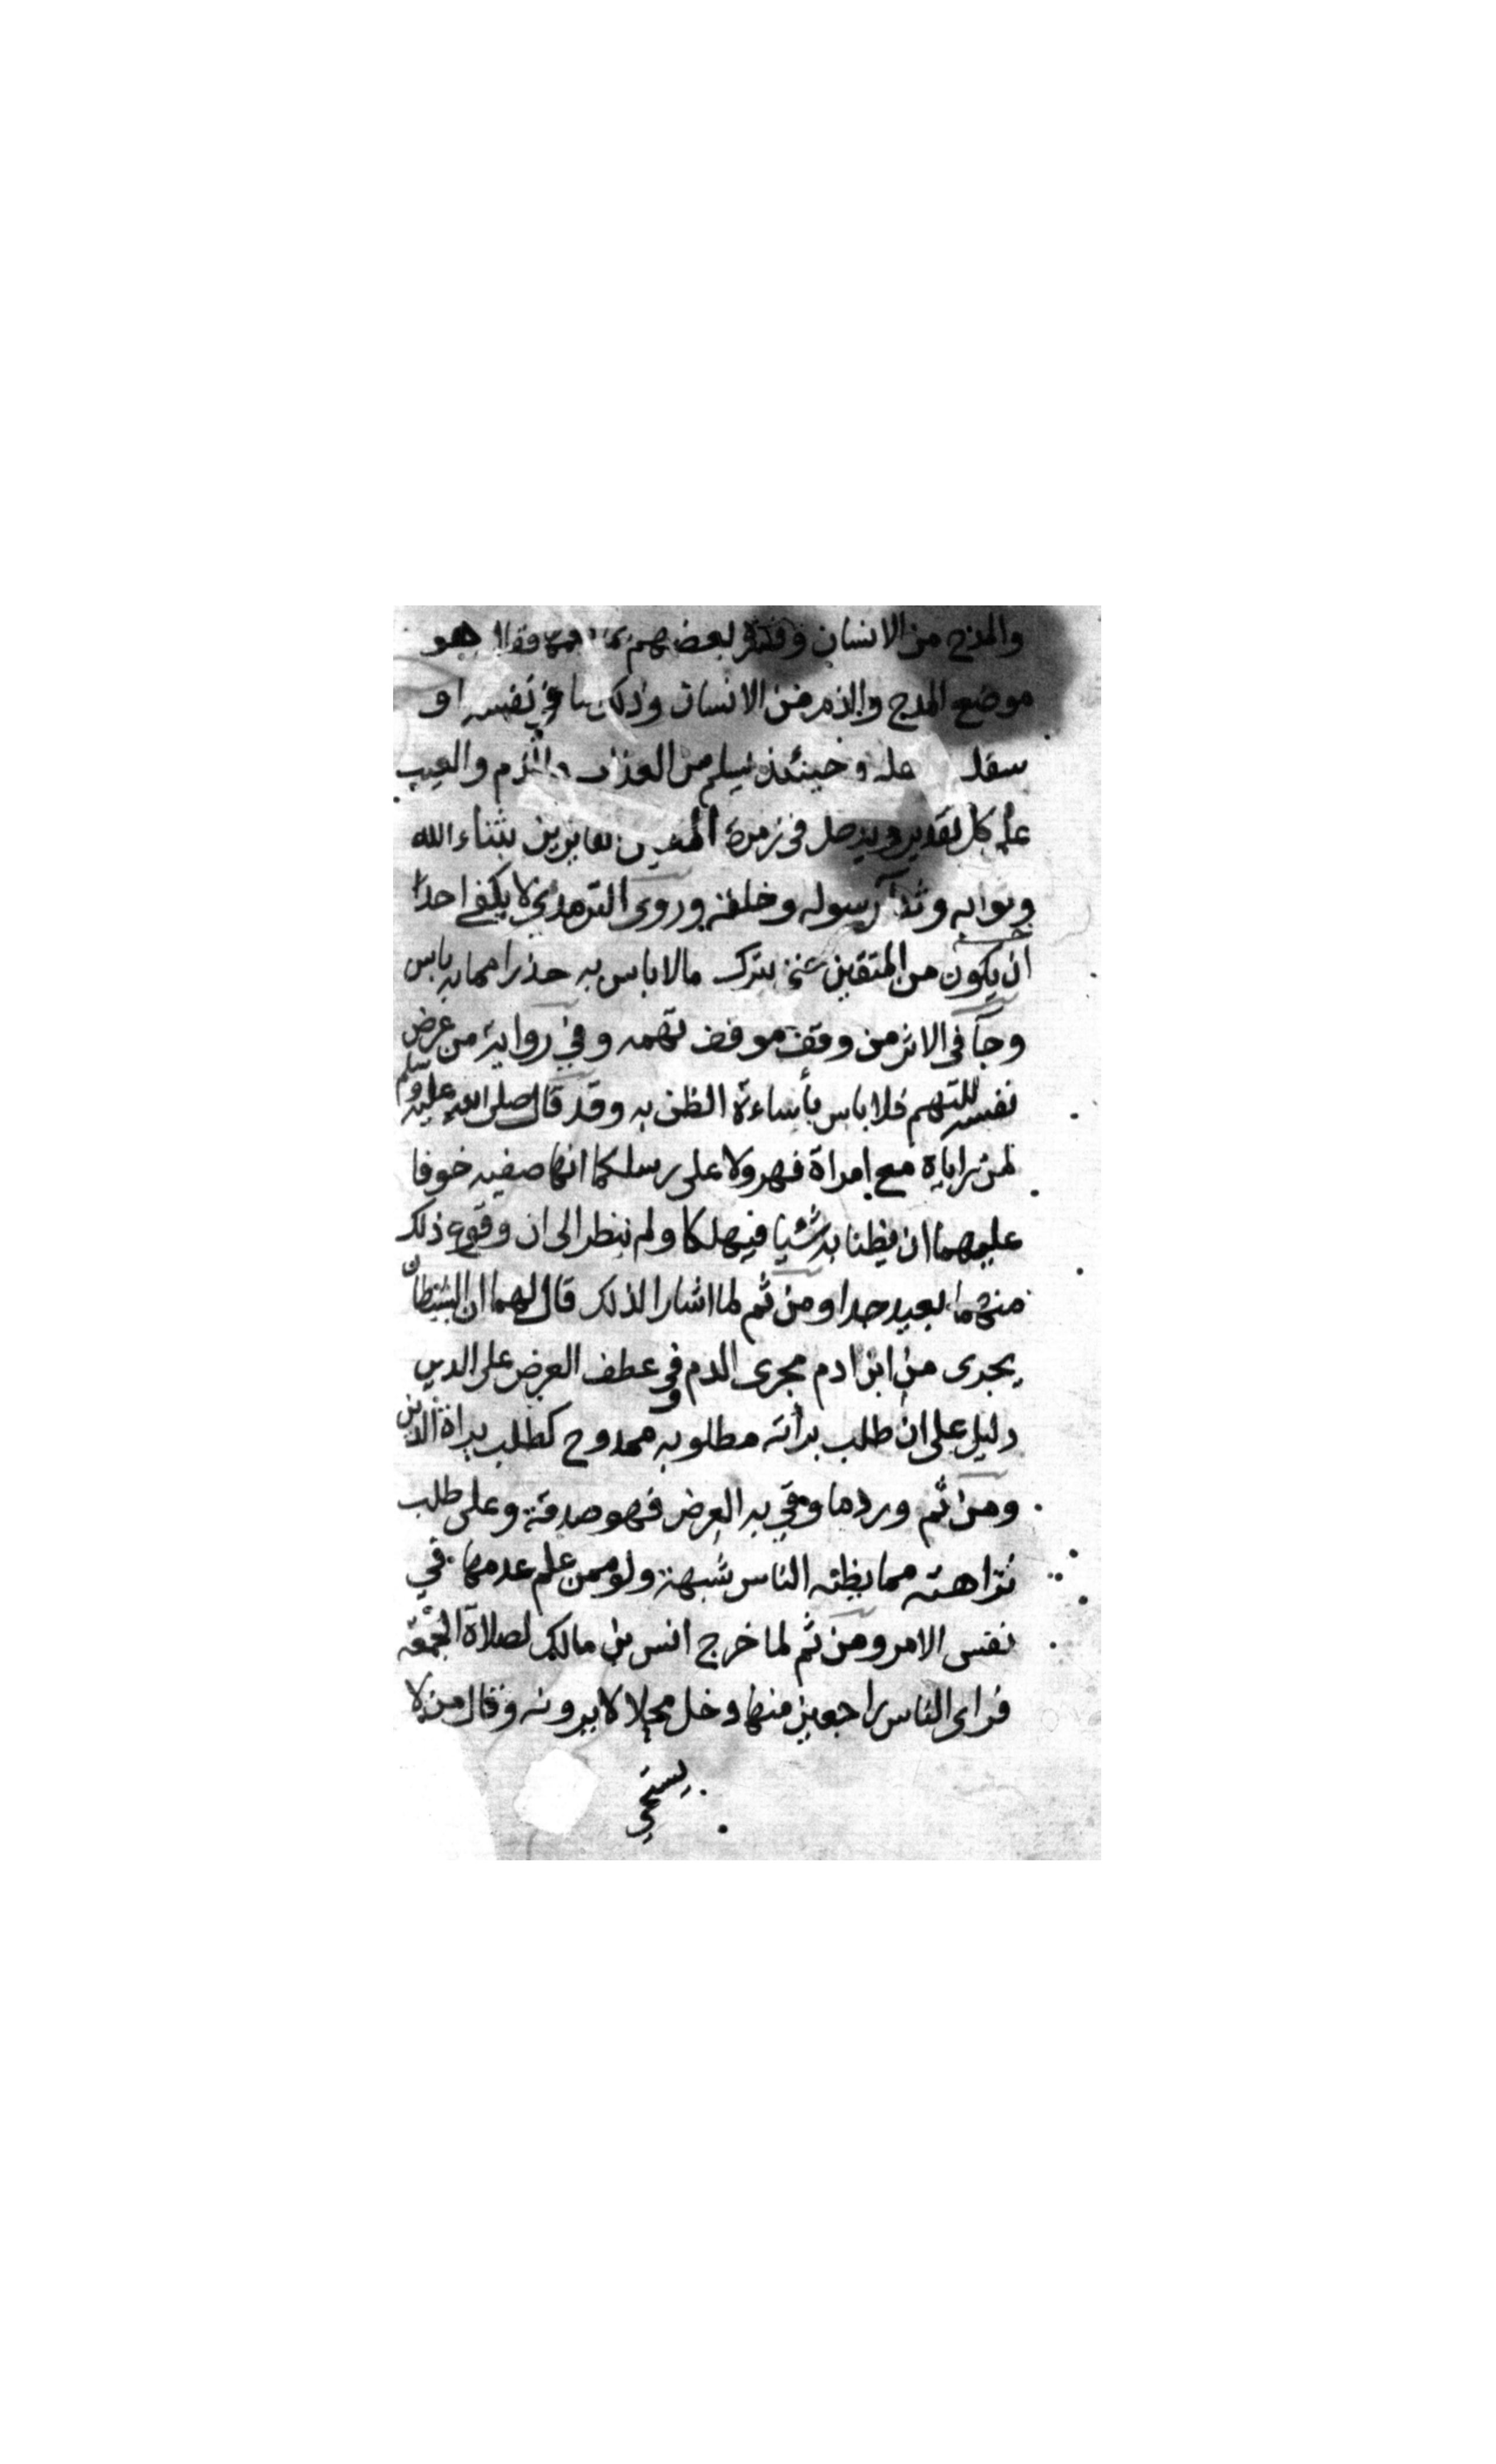 والمدح من الانسان وفسره بعضهم فقال هو
موضع المدح والذم من الانسان وذلك اما في نفسه او
وحينئذ يسلم من العذاب والذم والعيب
على كل تقدير ويدخل في زمرة بثناء الله
وثوابه وثنآء رسوله وخلقه وروى الترمذي لا يكفي احداً
ان يكون من المتقين حتى يترك مالا باس به حذرا مما به باس
وجآ في الاثر من وقف موقف تهمه وفي رواية من عرض
نفسه للتهم فلا باس بأساءة الظن به وقد قال صلى الله عليه وسلم
لمن راياه مع امراة فهرولا على رسلكما انها صفيه خوفا
عليهما ان يظنا به شيا فيهلكا ولم ينظر الى ان وقوع ذلك
منهما بعيد جدا ومن ثم لما اشارا لذلك قال لهما ان الشيطان
يجرى من ابن ادم مجرى الدم وفي عطف العرض على الدين
دليل على ان طلب برأته مطلوبه ممدوح كطلب براة الدين
ومن ثم ورد ما وقي به العرض فهو صدقة وعلى طلب
نزاهته مما يظنه الناس شبهة ولو ممن علم عدمها في
نفس الامر ومن ثم لما خرج انس بن مالك لصلاة الجمعه
فراى الناس راجعين منها دخل محلا لا يرونه وقال من لا
يستحي